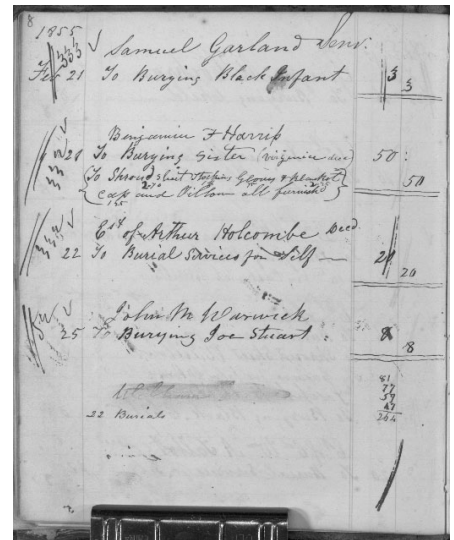 8
1855
Samuel Garland Senr.
Feb 21 To Burying Black Infant 3
3
Benjamin F Harris
21 To Burying Sister (Virginia decd) 50
To Shroud Gloves & blanket 50
cap and Pillow all furnish
Est of Arthur Holcombe Decd
22 To Burial Services for Self 20
20
John M Warwick
25 To Burying Joe Stuart 8
8
81
77
59
47
264
22 Burials